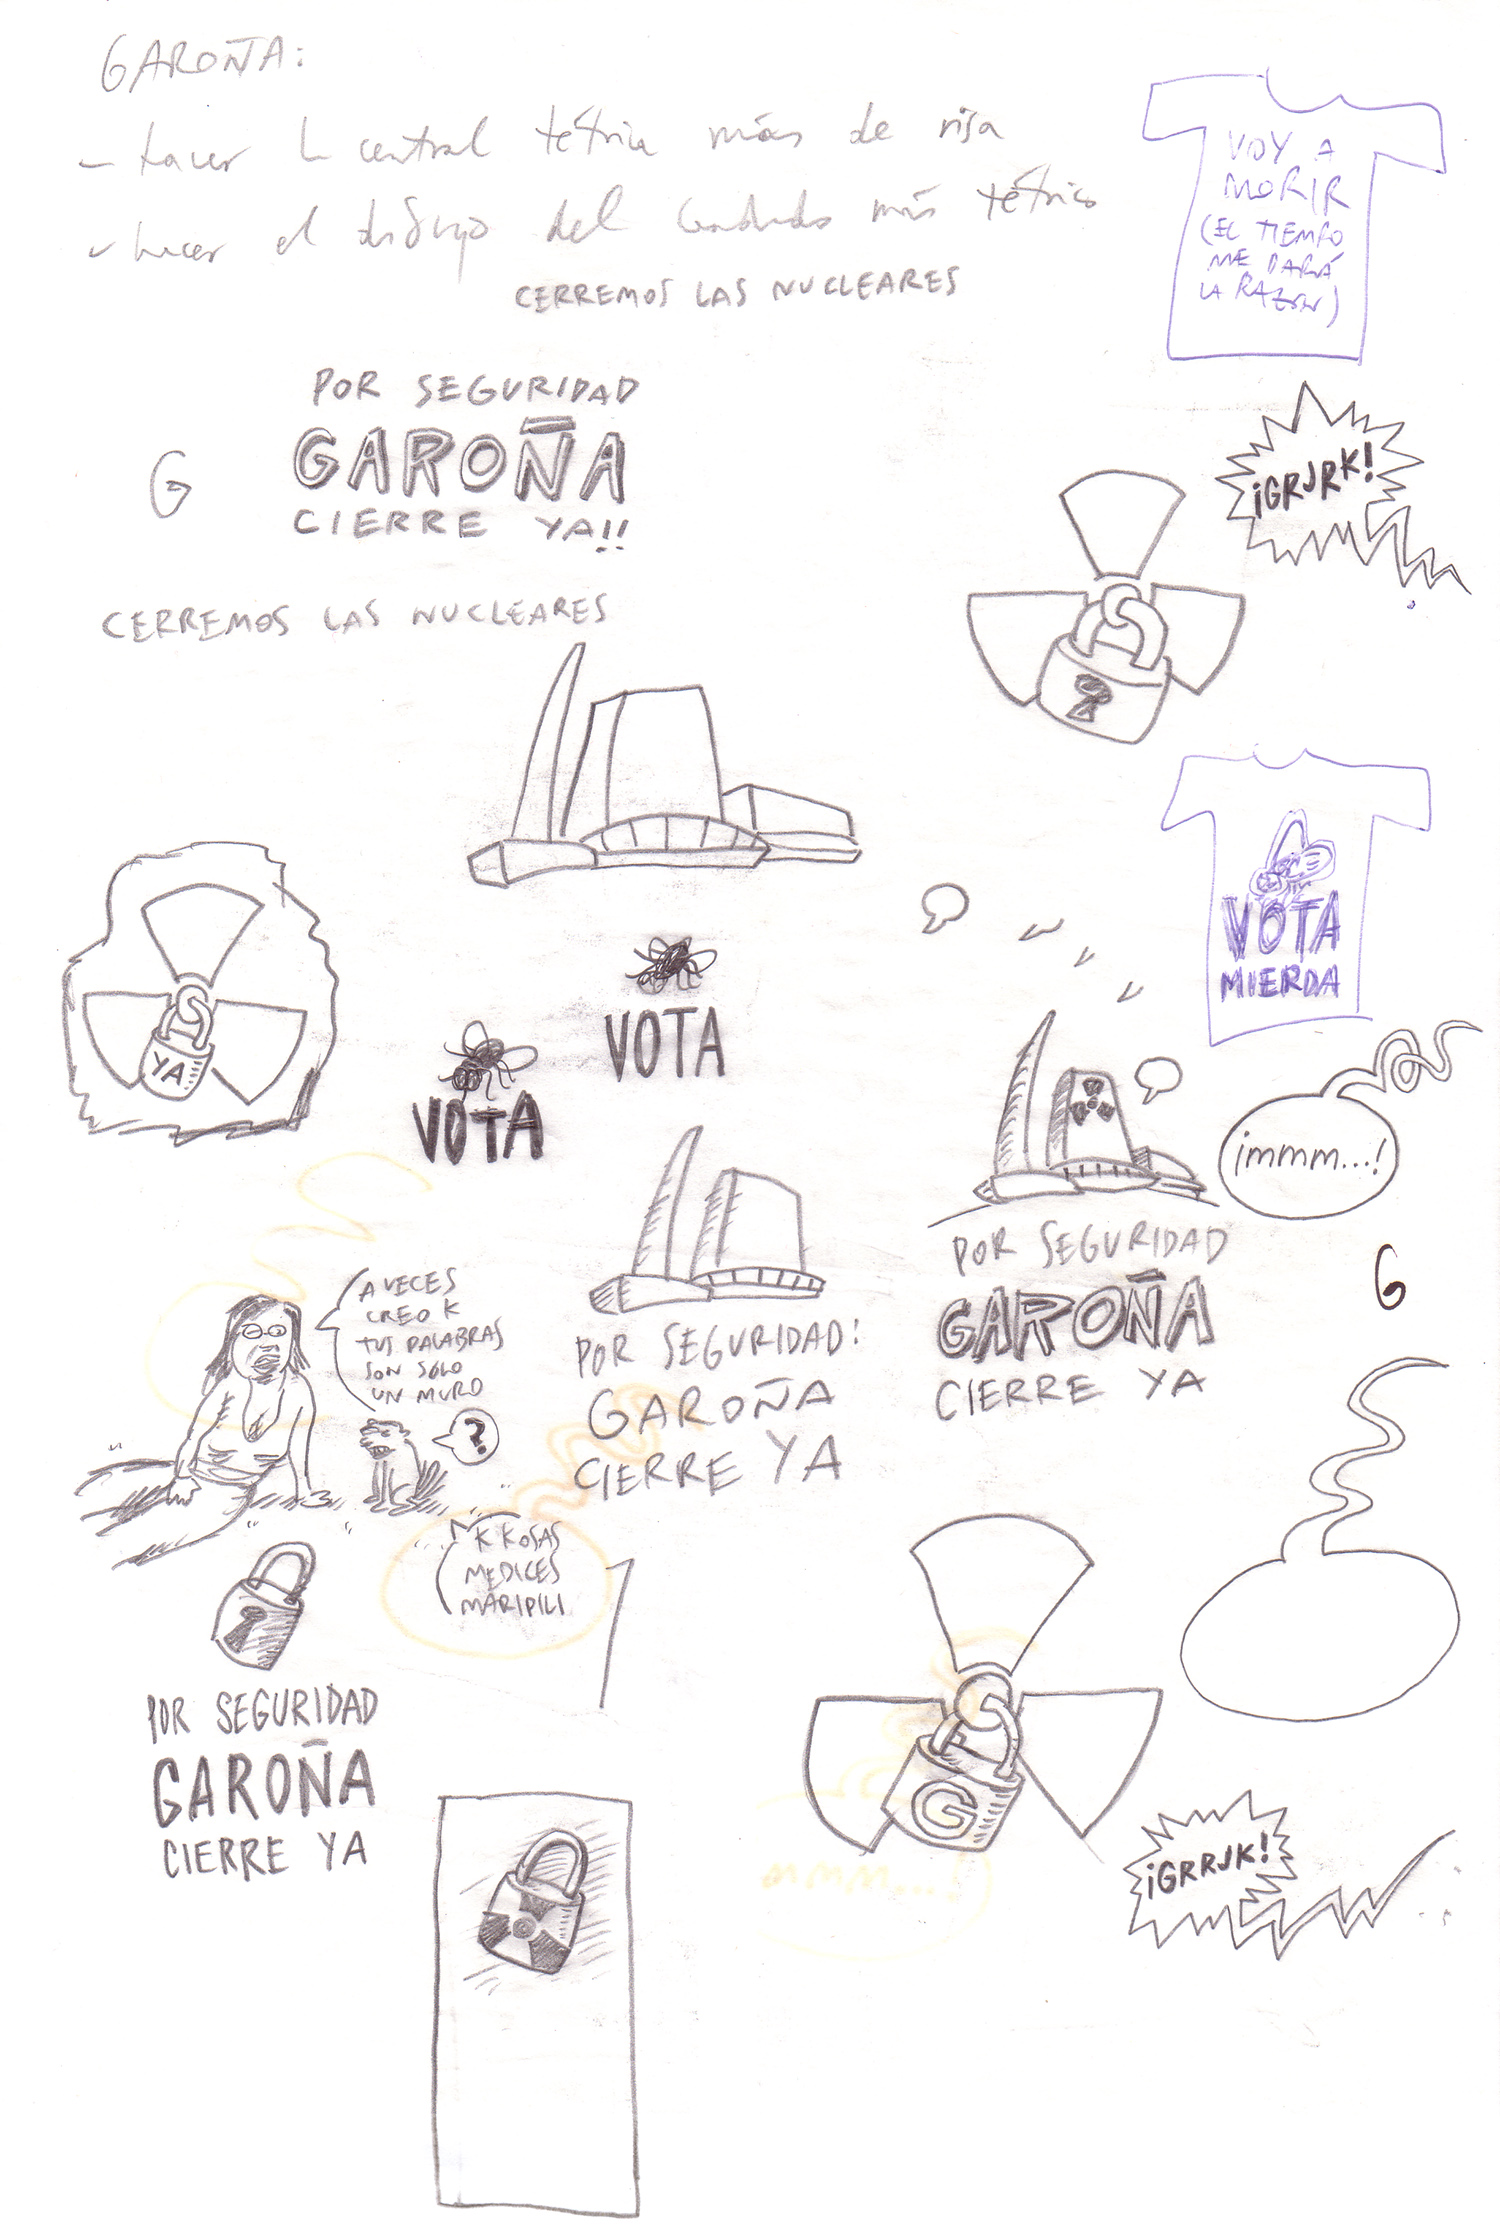 GAROÑA:
- hacer la central tétrica más de risa
- hacer el dibujo del candado más tétrico
CERREMOS LAS NUCLEARES
VOY A
MORIR
(EL TIEMPO
ME DARÁ
LA RAZÓN)
POR SEGURIDAD
GAROÑA
CIERRE YA!!
G
¡GRJRK!
CERREMOS LAS NUCLEARES
VOTA
MIERDA
YA
VOTA
VOTA
¡mmm...!
POR SEGURIDAD
GAROÑA
CIERRE YA
G
A VECES
CREO K
TUS PALABRAS
SON SOLO
UN MURO
?
POR SEGURIDAD!
GAROÑA
CIERRE YA
K KOSAS
MEDICES
MARIPILI
POR SEGURIDAD
GAROÑA
CIERRE YA
G
mmm...!
¡GRRJK!